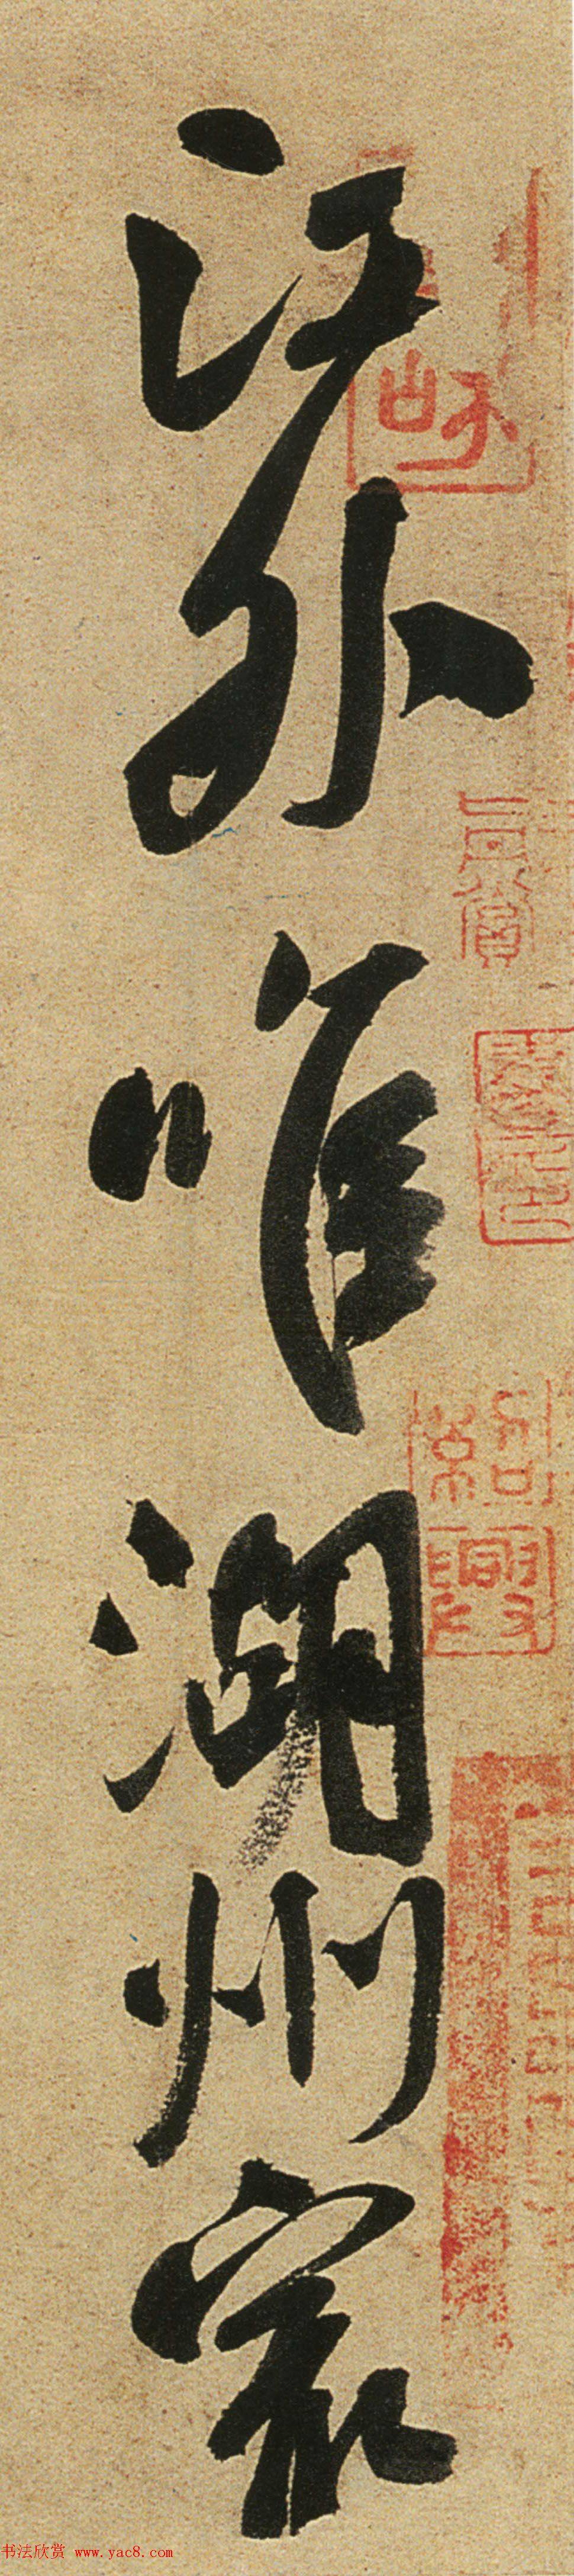 江外唯湖州最
书法欣赏 www.yac8.com